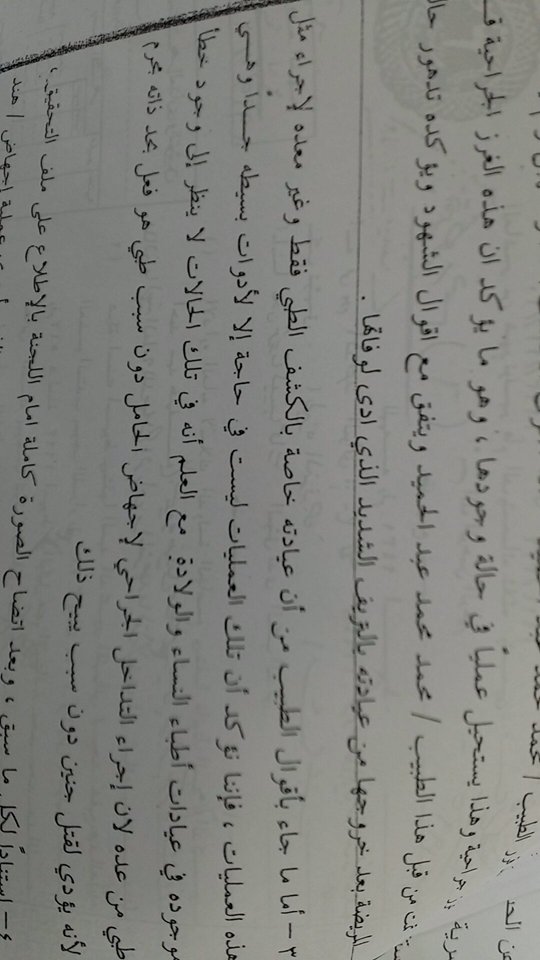 محمد حمد
الطبيب /
ية وهذا يستحيل عملياً في حالة وجودها ، وهو ما يؤكد ان هذه الغرز الجراحية
من قبل هذا الطبيب / محمد محمد عبد الحميد ويتفق مع اقوال الشهود ويؤكده تدهور
المريضة بعد خروجها من عيادته بالتريف الشديد الذي ادى لوفاتها .
٣ – أما ما جاء بأقوال الطبيب من أن عيادته خاصة بالكشف الطبي فقط وغير معده لإجراء مثل
هذه العمليات ، فإننا نؤكد أن تلك العمليات ليست في حاجة إلا لأدوات بسيطه جداً وهي
موجوده في عيادات أطباء النساء والولادة مع العلم أنه في تلك الحالات لا ينظر إلى وجود خطأ
طبي من عده لان إجراء التداخل الجراحي لإجهاض الحامل دون سبب طبي هو فعل بحد ذاته مجرم
لأنه يؤدي لقتل جنين دون سبب يبيح ذلك
٤ – استناداً لكل ما سبق ، وبعد اتضاح الصورة كاملة امام اللجنة بالإطلاع على ملف التحقيق ،
عملية إجهاض / هند